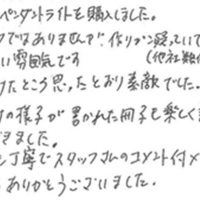 ペンダントライトを購入しました。
ではありませんが、作りが凝っていて
い雰囲気です (他社製
けたところ思ったとおり素敵でした。
の様子が書かれた冊子も楽しく
きました。
丁寧でスタッフさんのコメント付
ありがとうございました。